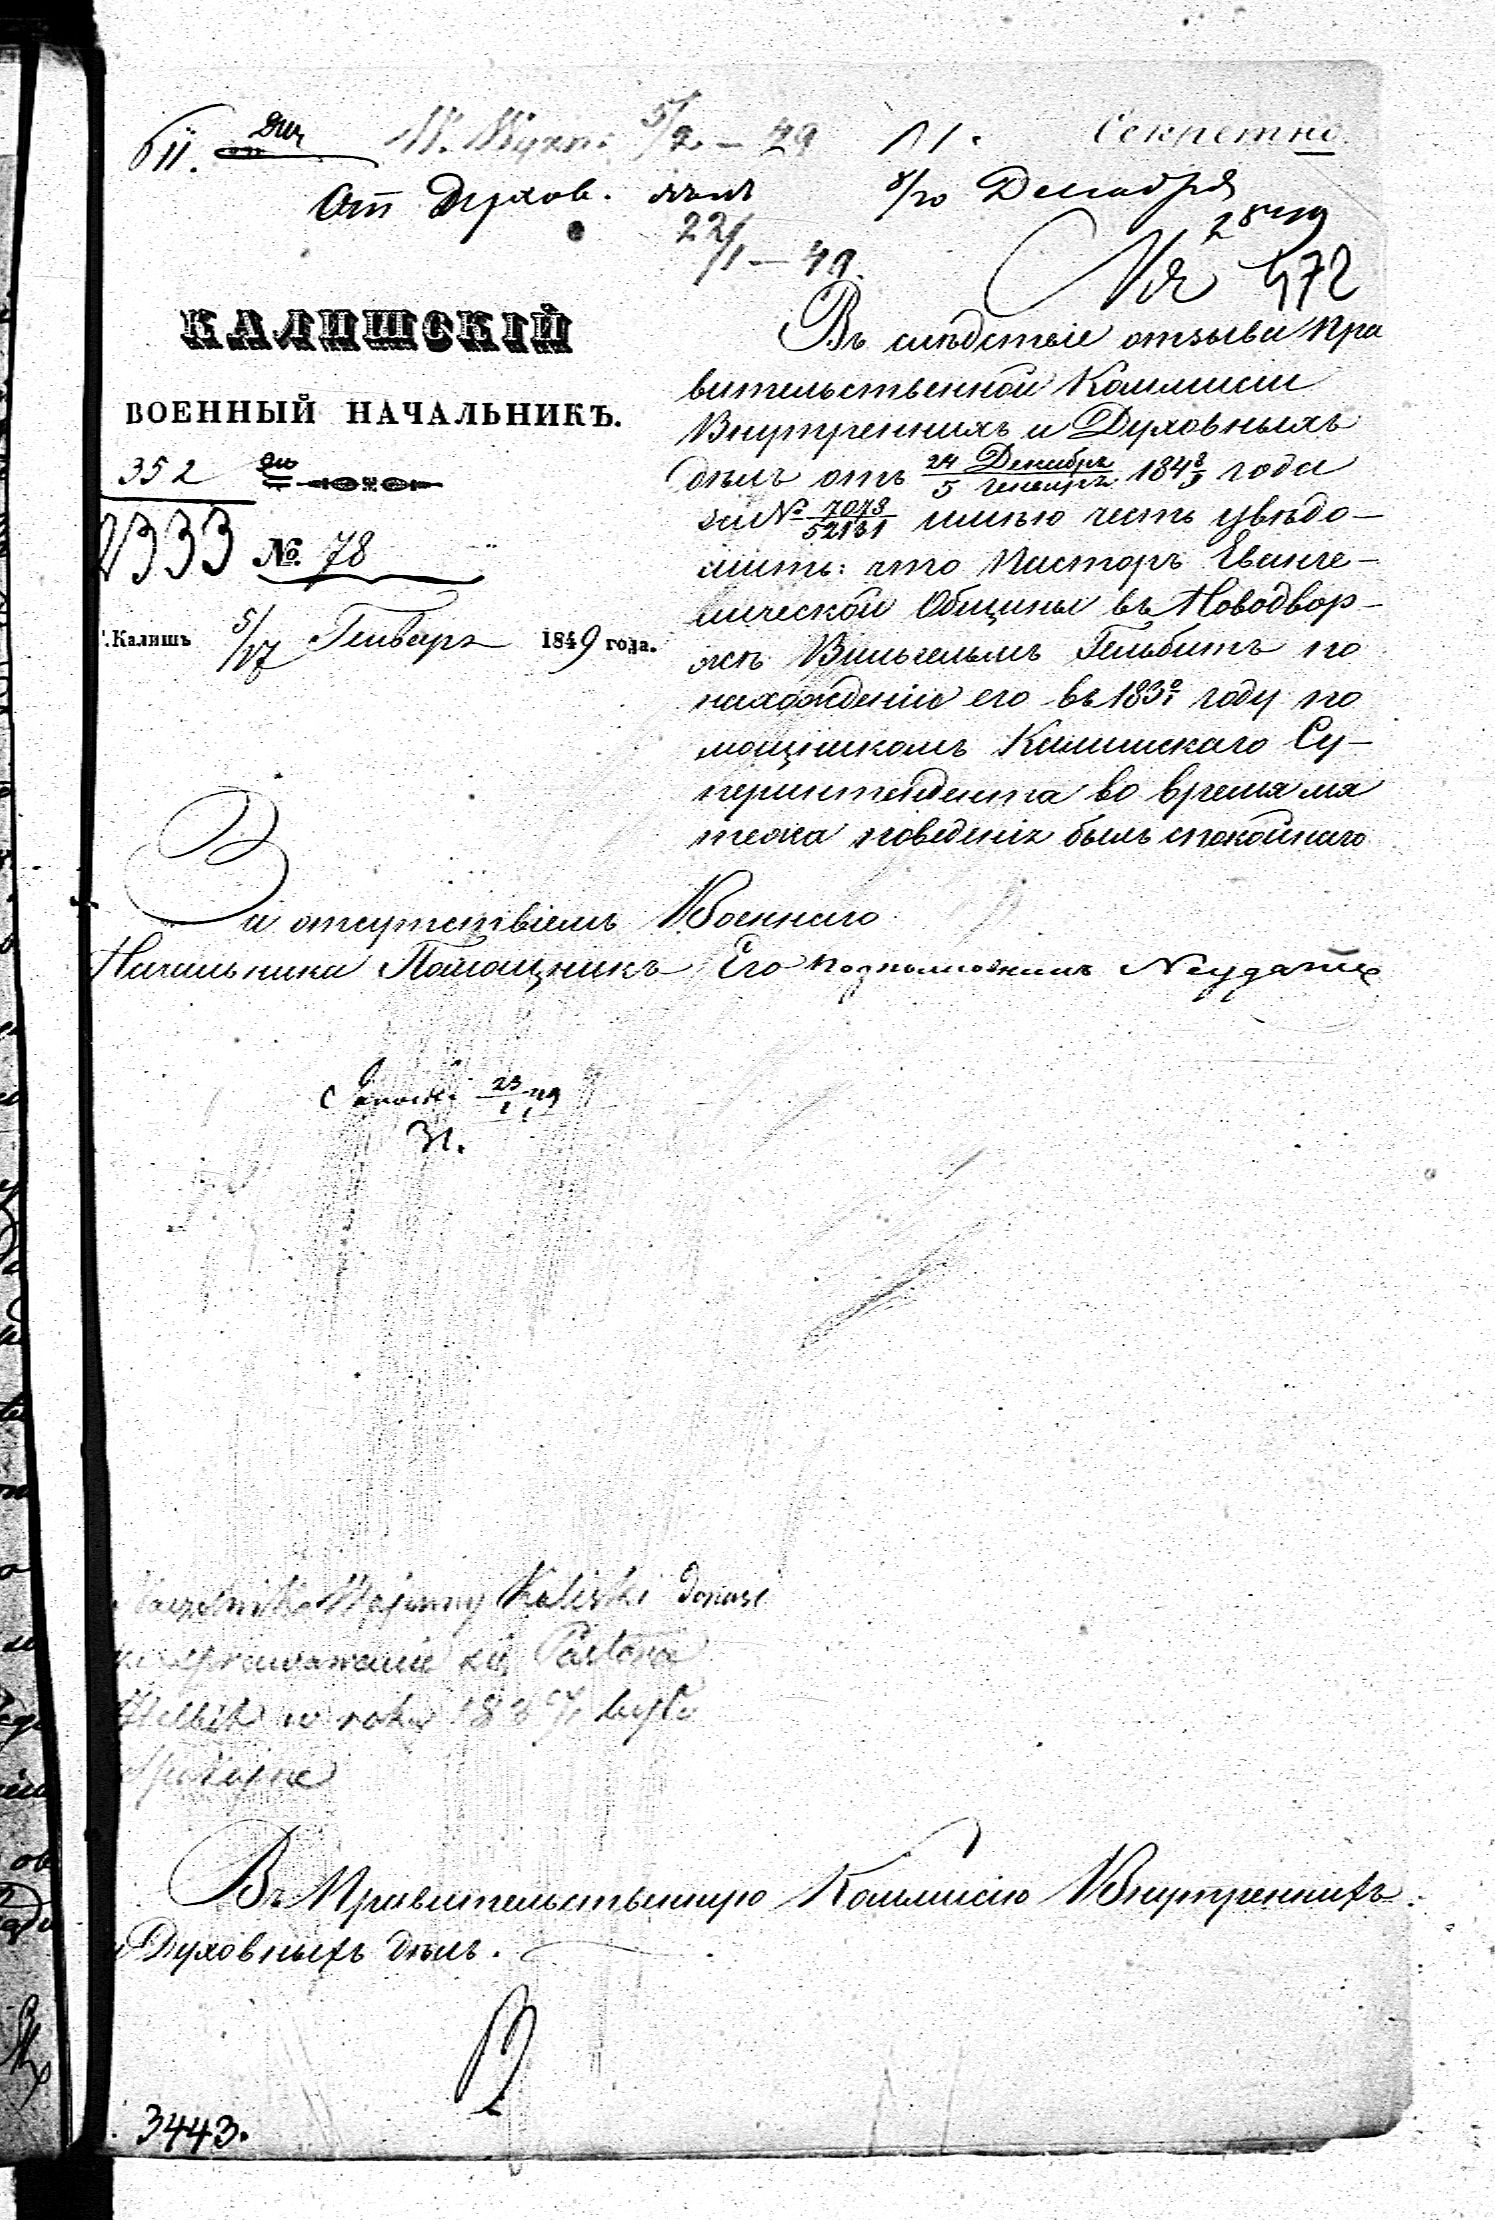 Секретно
От Духов.
Декабря
22/1 — 49.
№ 472
КАЛИШСКІЙ
ВОЕННЫЙ НАЧАЛЬНИКЪ.
352
2333
№. 78
Г. Калишъ 5/17 Генваря 1849 года.
Въ слѣдствіе отзыва Пра
вительственной Коммисіи
Внутреннихъ и Духовныхъ
дѣлъ отъ 24 Декабря / 5 Генваря 184 8/9 года
за № 7073/52131 имѣю честь увѣдо–
мить: что Пасторъ Еванге–
лической Общины въ Новодвор–
жѣ Вильгельмъ Гельбитъ по
нахожденіе его въ 183 0/1 году по
мощникомъ Калишскаго Су–
перинтендента во время мя
тежа поведенія былъ спокойнаго
За отсутствіемъ Военнаго
Начальника Помощникъ Его Подполковникъ
23/1 49
Naczelnik Wojenny Kaliski donosi
że sprawowanie się Pastora
Helbit w roku 183 0/1 było
spokojne
Въ Правительственную Коммисію Внутреннихъ
и Духовныхъ дѣлъ.
3443.